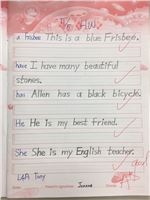 a frisbee This is a blue Frisbee.
have I have many beautiful
stones.
has Allen has a black bicycle.
He He is my best friend.
She She is my English teacher.